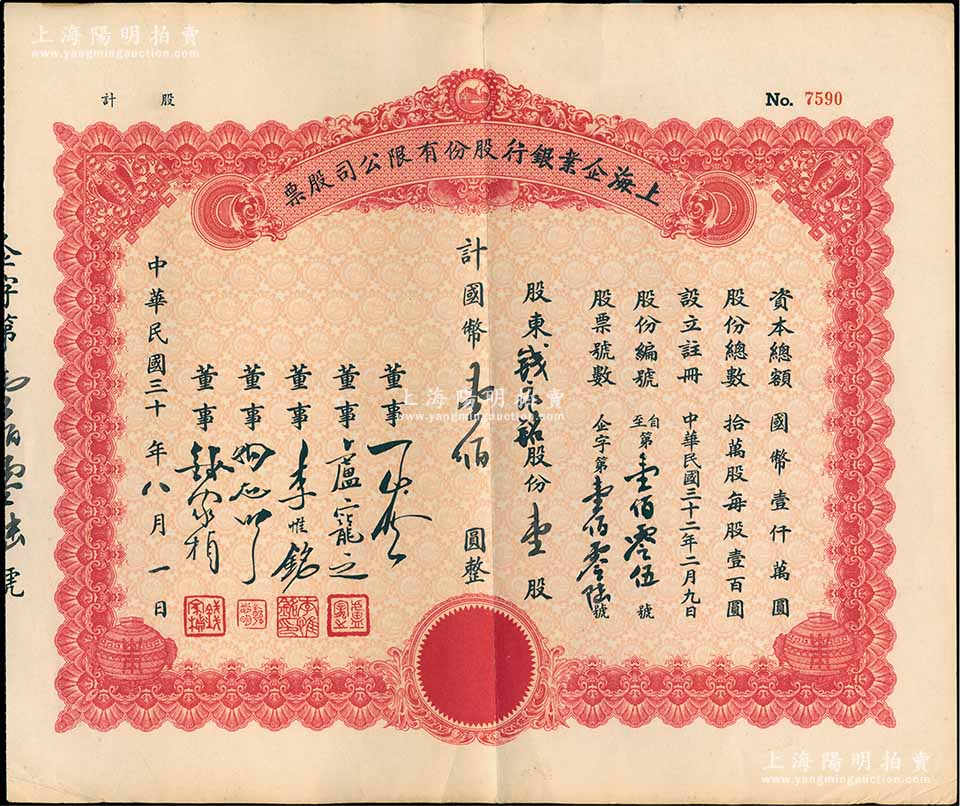 上海陽明拍賣
www.yangmingauction.com
股 計
No. 7590
上海企業銀行股份有限公司股票
資本總額 國幣壹仟萬圓
股份總數 拾萬股每股壹百圓
設立註冊 中華民國三十二年二月九日
股份編號 自至第壹佰零伍號
股票號數 企字第壹佰零陸號
股東錢 銘股份壹股
計國幣壹佰圓整
董事
董事 盧寵之
董事 李惟銘
董事
董事
中華民國三十 年八月一日
企字第 壹佰零陸號
上海陽明拍賣
www.yangmingauction.com
上海陽明拍賣
www.yangmingauction.com